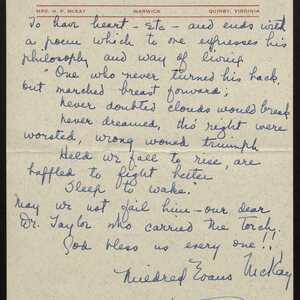 MRS. H. P. McKAY WARWICK QUINBY, VIRGINIA
To have heart - etc - and ends with
a poem which to me expresses his
philosophy and way of living
"One who never turned his back,
but marched breast forward;
never doubted clouds would break,
never dreamed, tho' right were
worsted, wrong would triumph
Held we fall to rise, are
baffled to fight better
Sleep to wake."
May we not fail him - our dear
Dr. Taylor who carried the torch.
God bless us every one!!
Mildred Evans McKay